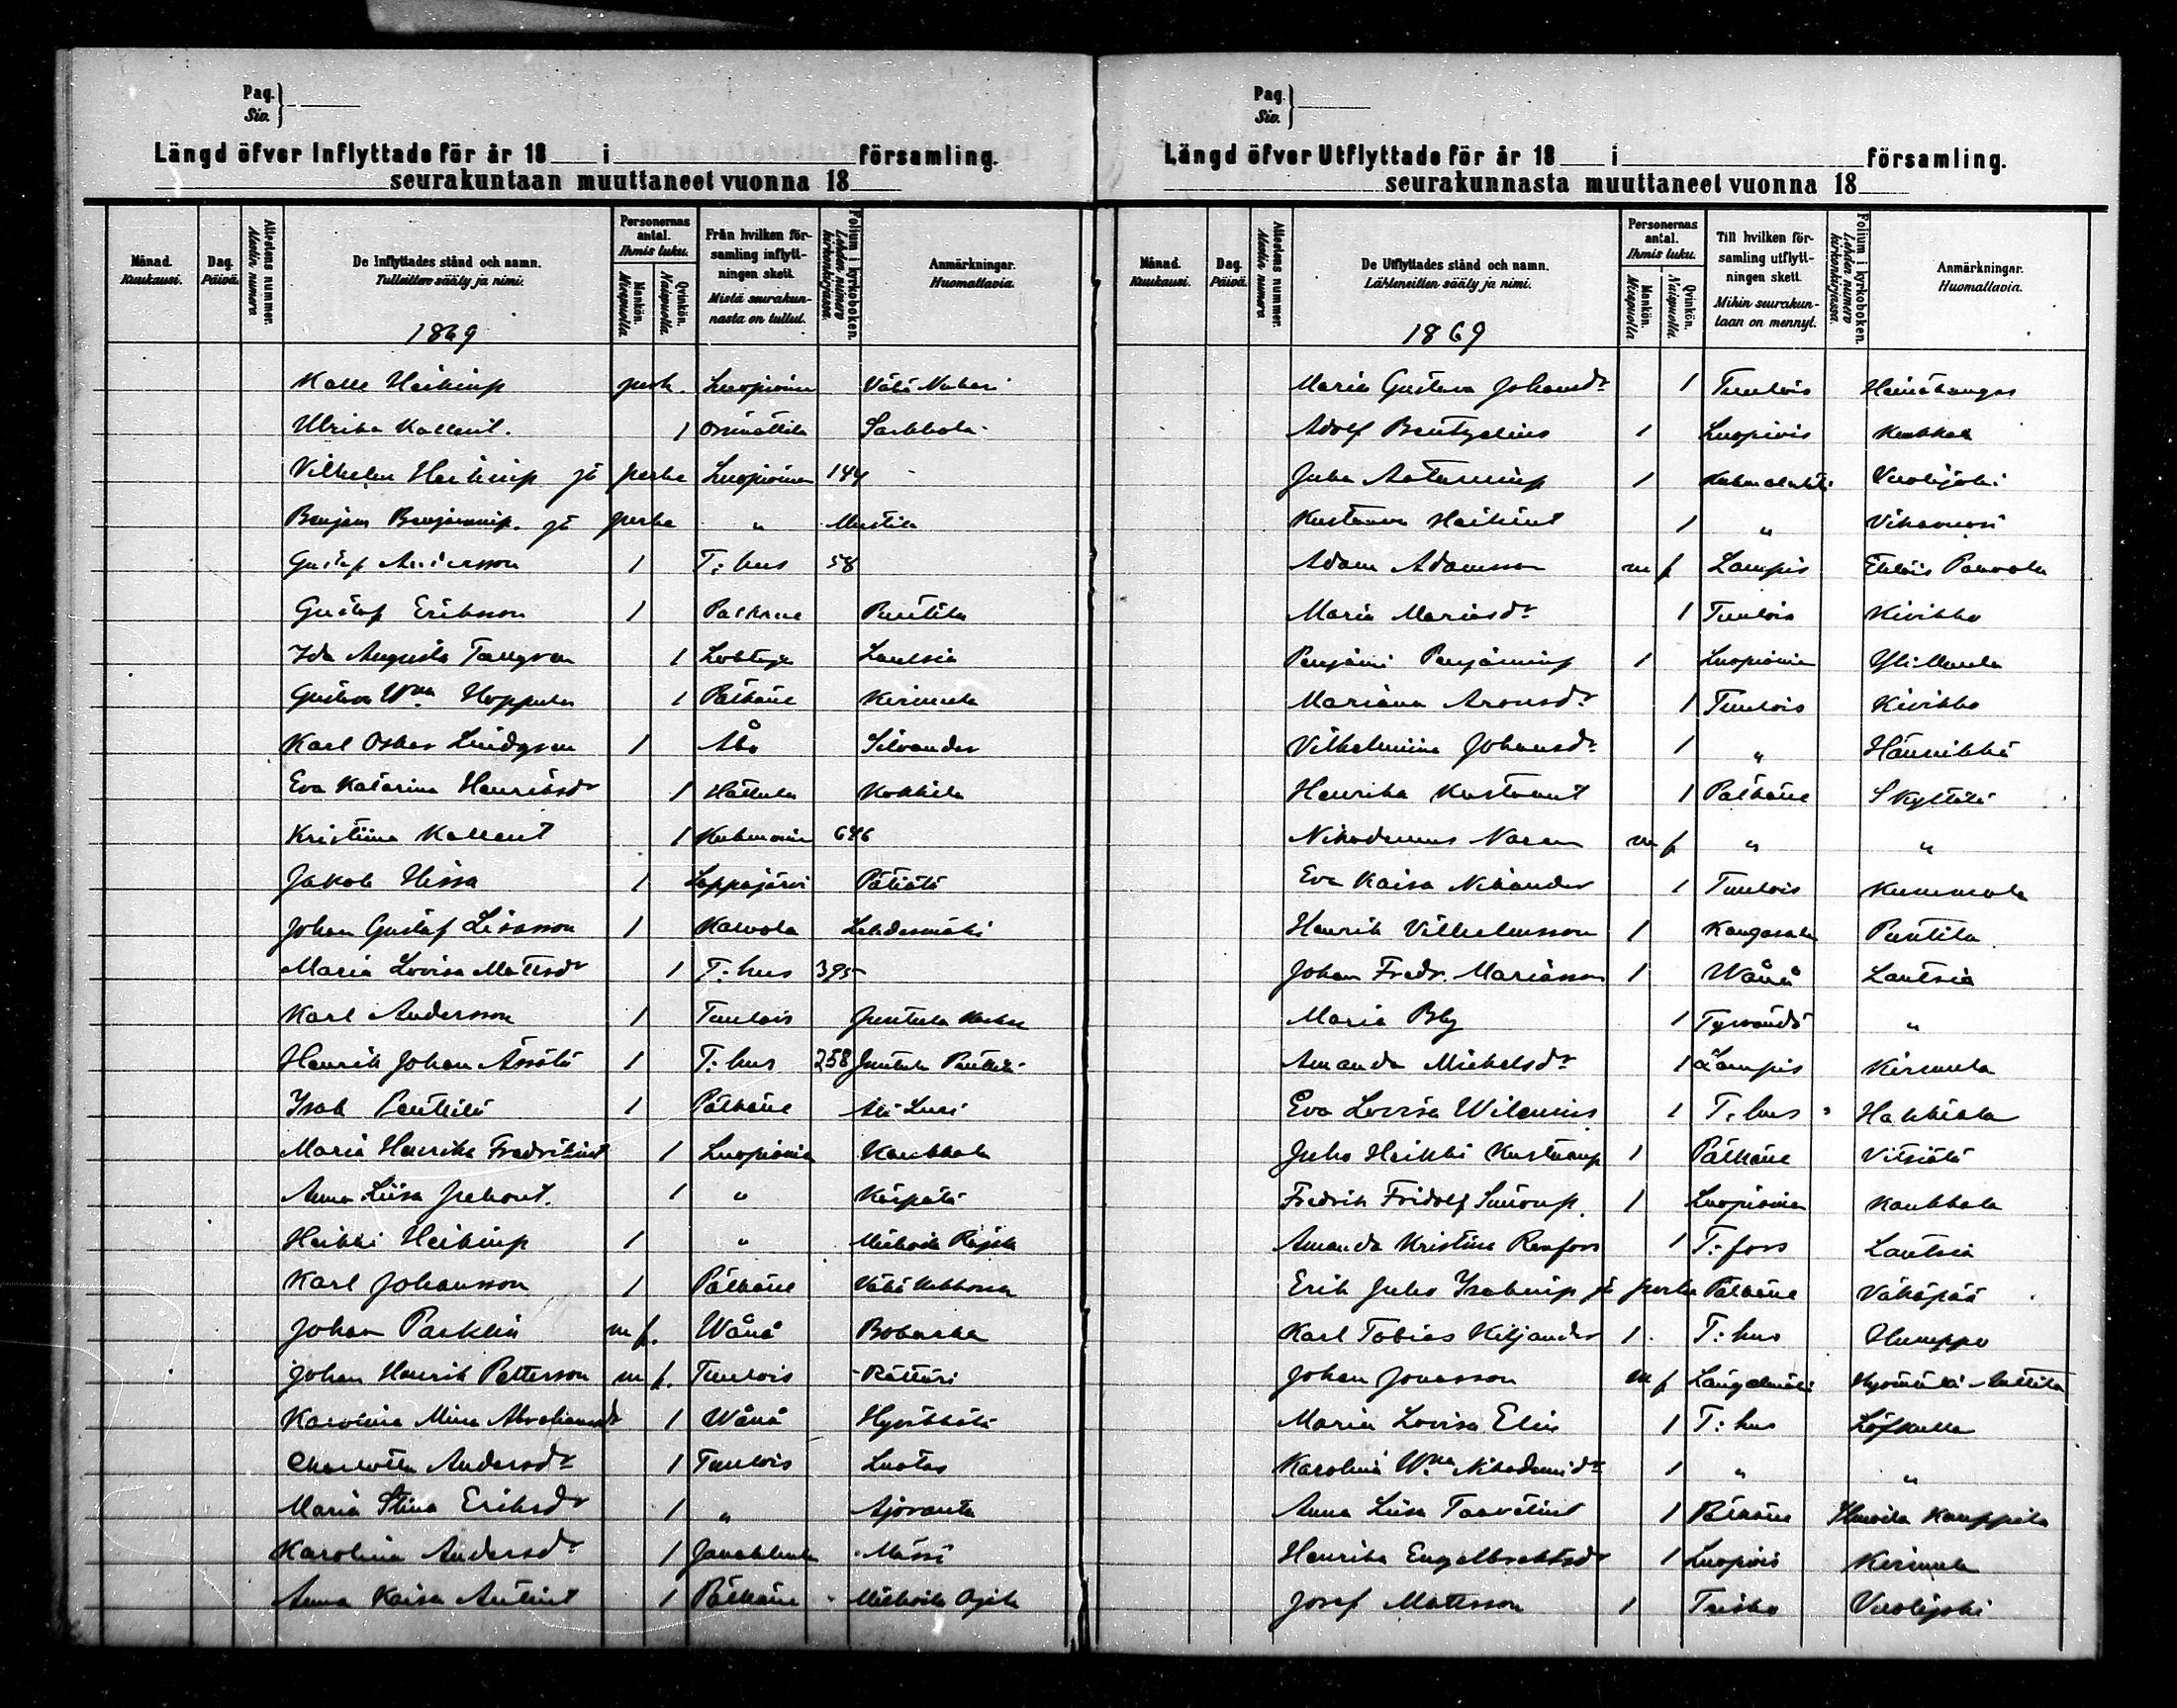 Pag.
Siv.
Längd öfver Inflyttade för år 18 i församling.
seurakuntaan muuttaneet vuonna 18
Månad.
Kuukausi.
Dag.
Päivä.
Attestens nummer.
Alestin numero
De Inflyttades stånd och namn.
Tulleitten sääty ja nimi.
1869
Personernas antal.
Ihmis luku.
Mankön.
Miespuolia
Qvinkön.
Naispuolia.
Från hvilken för-
samling inflytt-
ningen skett.
Mistä seurakun-
nasta on tullut.
Folium i kyrkoboken.
Lehden numero
kirkonkirjassa.
Anmärkningar.
Huomattavia.
Kalle Heikinp perh. Luopioinen
Ulrika Kallent. 1 Orimattila Sarkkola
Vilhelm Heikinp ja perhe Luopioinen 144
Benjam Benjaminp. ja perhe " Mustila
Gustaf Andersson 1 T:hus 58
Gustaf Eriksson 1 Pälkäne Puntila
Ida Augusta Tallgren 1 Lautsia
Gustava Wma Hoppula 1 Pälkäne Kirmula
Karl Oskar Lindgren 1 Åbo Silvander
Eva Katarina Henriksdr 1 Hattula Kokkila
Kristiina Kallent 1 Kuhmoinen 646
Jakob Hissa 1 Lappajärvi Pätiälä
Johan Gustaf Lisasson 1 Kalvola Lehdesmäki
Maria Lovisa Mattsdr 1 T:hus 395
Karl Andersson 1 Tuulois Juntula
Henrik Johan Ässälä 1 T:hus 258 Juntula Penttilä
Isak Penttilä 1 Pälkäne
Maria Henrika Fredrikint 1 Luopioinen Kaukkala
Anna Liisa Juhont. 1 " Kärpälä
Heikki Heikinp 1 "
Karl Johansson 1 Pälkäne
Johan Parklin m f. Wånå
Johan Henrik Pettersson m f. Tuulois Rätteri
Karolina Mina Abrahamsdr 1 Wånå Hyrökkälä
Charlotta Andersdr 1 Tuulois Luotas
Maria Stina Eriksdr 1 " Ajoranta
Karolina Andersdr 1 Janakkala Mässi
Anna Kaisa Antint 1 Pälkäne
Pag.
Siv.
Längd öfver Utflyttade för år 18 i församling.
seurakunnasta muuttaneet vuonna 18
Månad.
Kuukausi.
Dag.
Päivä.
Attestens nummer.
Alestin numero
De Utflyttades stånd och namn.
Lähteneitten sääty ja nimi.
1869
Personernas antal.
Ihmis luku.
Mankön.
Miespuolia
Qvinkön.
Naispuolia.
Till hvilken för-
samling utflytt-
ningen skett.
Mihin seurakun-
taan on mennyt.
Folium i kyrkoboken.
Lehden numero
kirkonkirjassa.
Anmärkningar.
Huomattavia.
Maria Gustava Johansdr 1 Tuulois Heinäkangas
Adolf Bentzelius 1 Luopiois
Juha Aataminp 1 Kuhmalahti Vuolijoki
Kustaava Heikint 1 " Vihavuosi
Adam Adamsson m f Lampis Etelois Paavola
Maria Mariasdr 1 Tuulois Kivikko
Penjami Penjaminp 1 Luopioinen
Mariana Aronsdr 1 Tuulois Kivikko
Vilhelmiina Johansdr 1 " Hännikkä
Henrika Kustaant 1 Pälkäne S Kyttälä
Nikodemus Naren m f " "
Eva Kaisa Nikander 1 Tuulois Kummola
Henrik Vilhelmsson 1 Kangasala Puntila
Johan Fredr. Mariasson 1 Wånå Lautsia
Maria Bly 1 Tyrvändö "
Amanda Michelsdr 1 Lampis Kirmula
Eva Lovisa Wilenius 1 T:hus Hakkiala
Juho Heikki Kustaanp 1 Pälkäne Vitsiälä
Fredrik Fridolf Simonp. 1 Luopioinen Kaukkala
Amanda Kristina Renfors 1 T:fors Lautsia
Erik Juho Isakinp ja perhe Pälkäne Vähäpää
Karl Tobias Kiljander 1 T:hus Humppo
Johan Jonasson m f Längelmäki
Maria Lovisa Elin 1 T:hus Löfkulla
Karolina Wma Nikodemidr 1 " "
Anna Liisa Taavetint 1 Pälkäne Ilmoila Kauppila
Henrika Engelbrektsdr 1 Luopiois Kirmula
Josef Mattsson 1 Teisko Vuolijoki